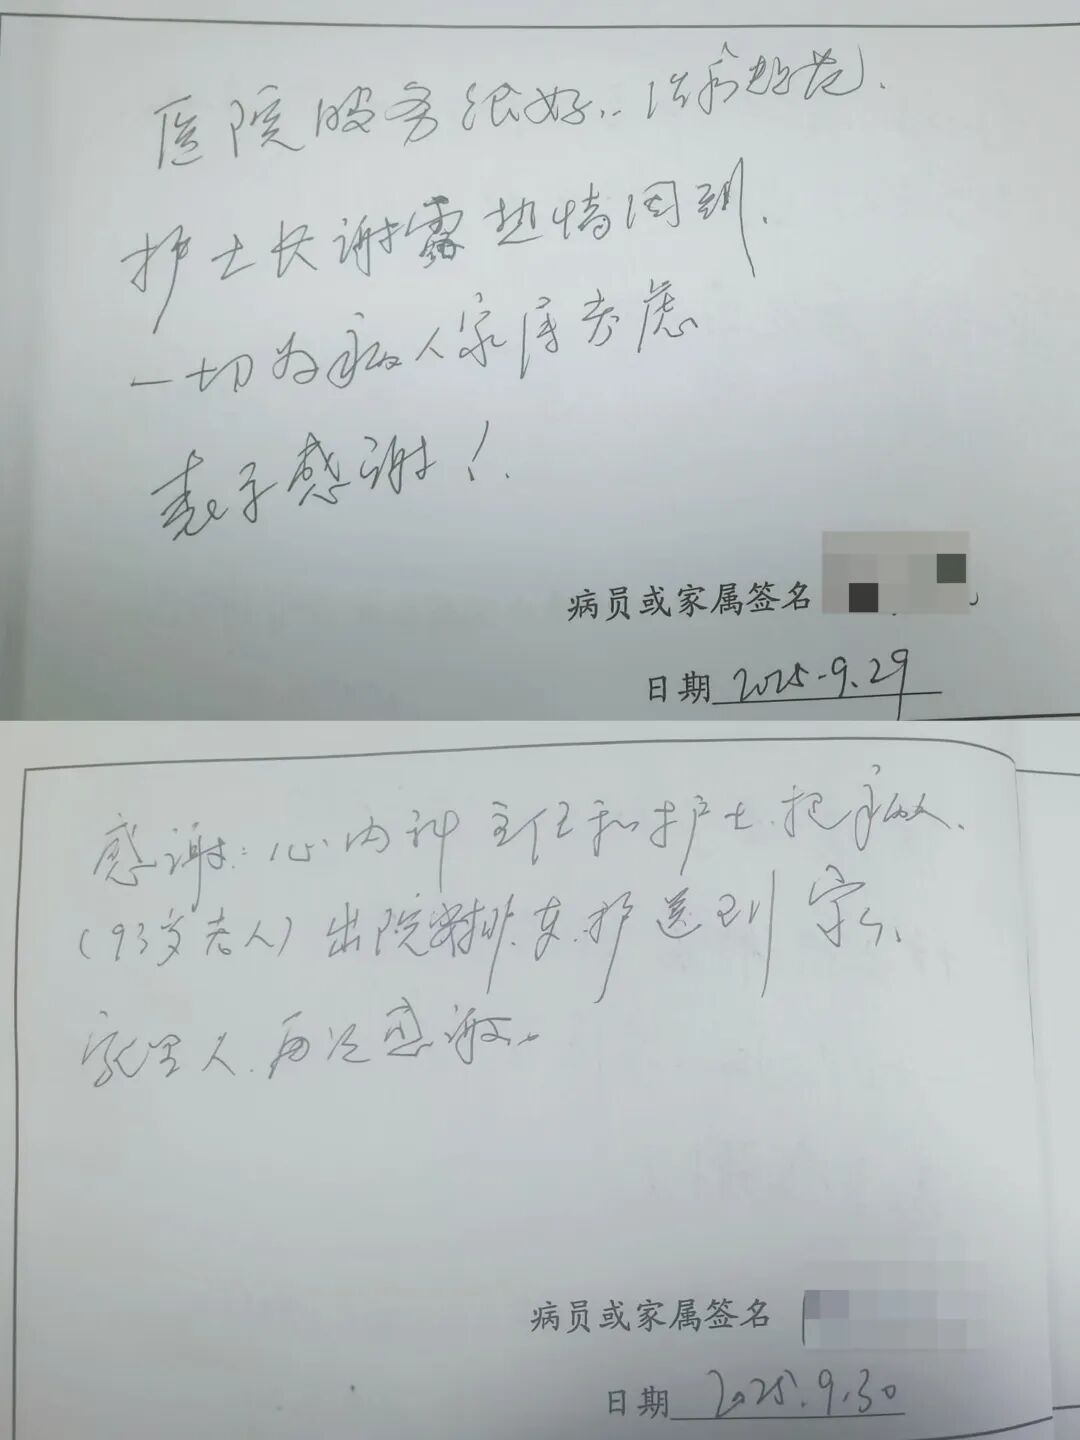 医院服务很好..治病规范.
护士长谢露热情周到.
一切为病人家属考虑
表示感谢!.
病员或家属签名
日期 2025.9.29
感谢:心内科主任和护士.把病人.
(93岁老人)出院安排.车.护送到家.
家里人.再次感谢.
病员或家属签名
日期 2025.9.30